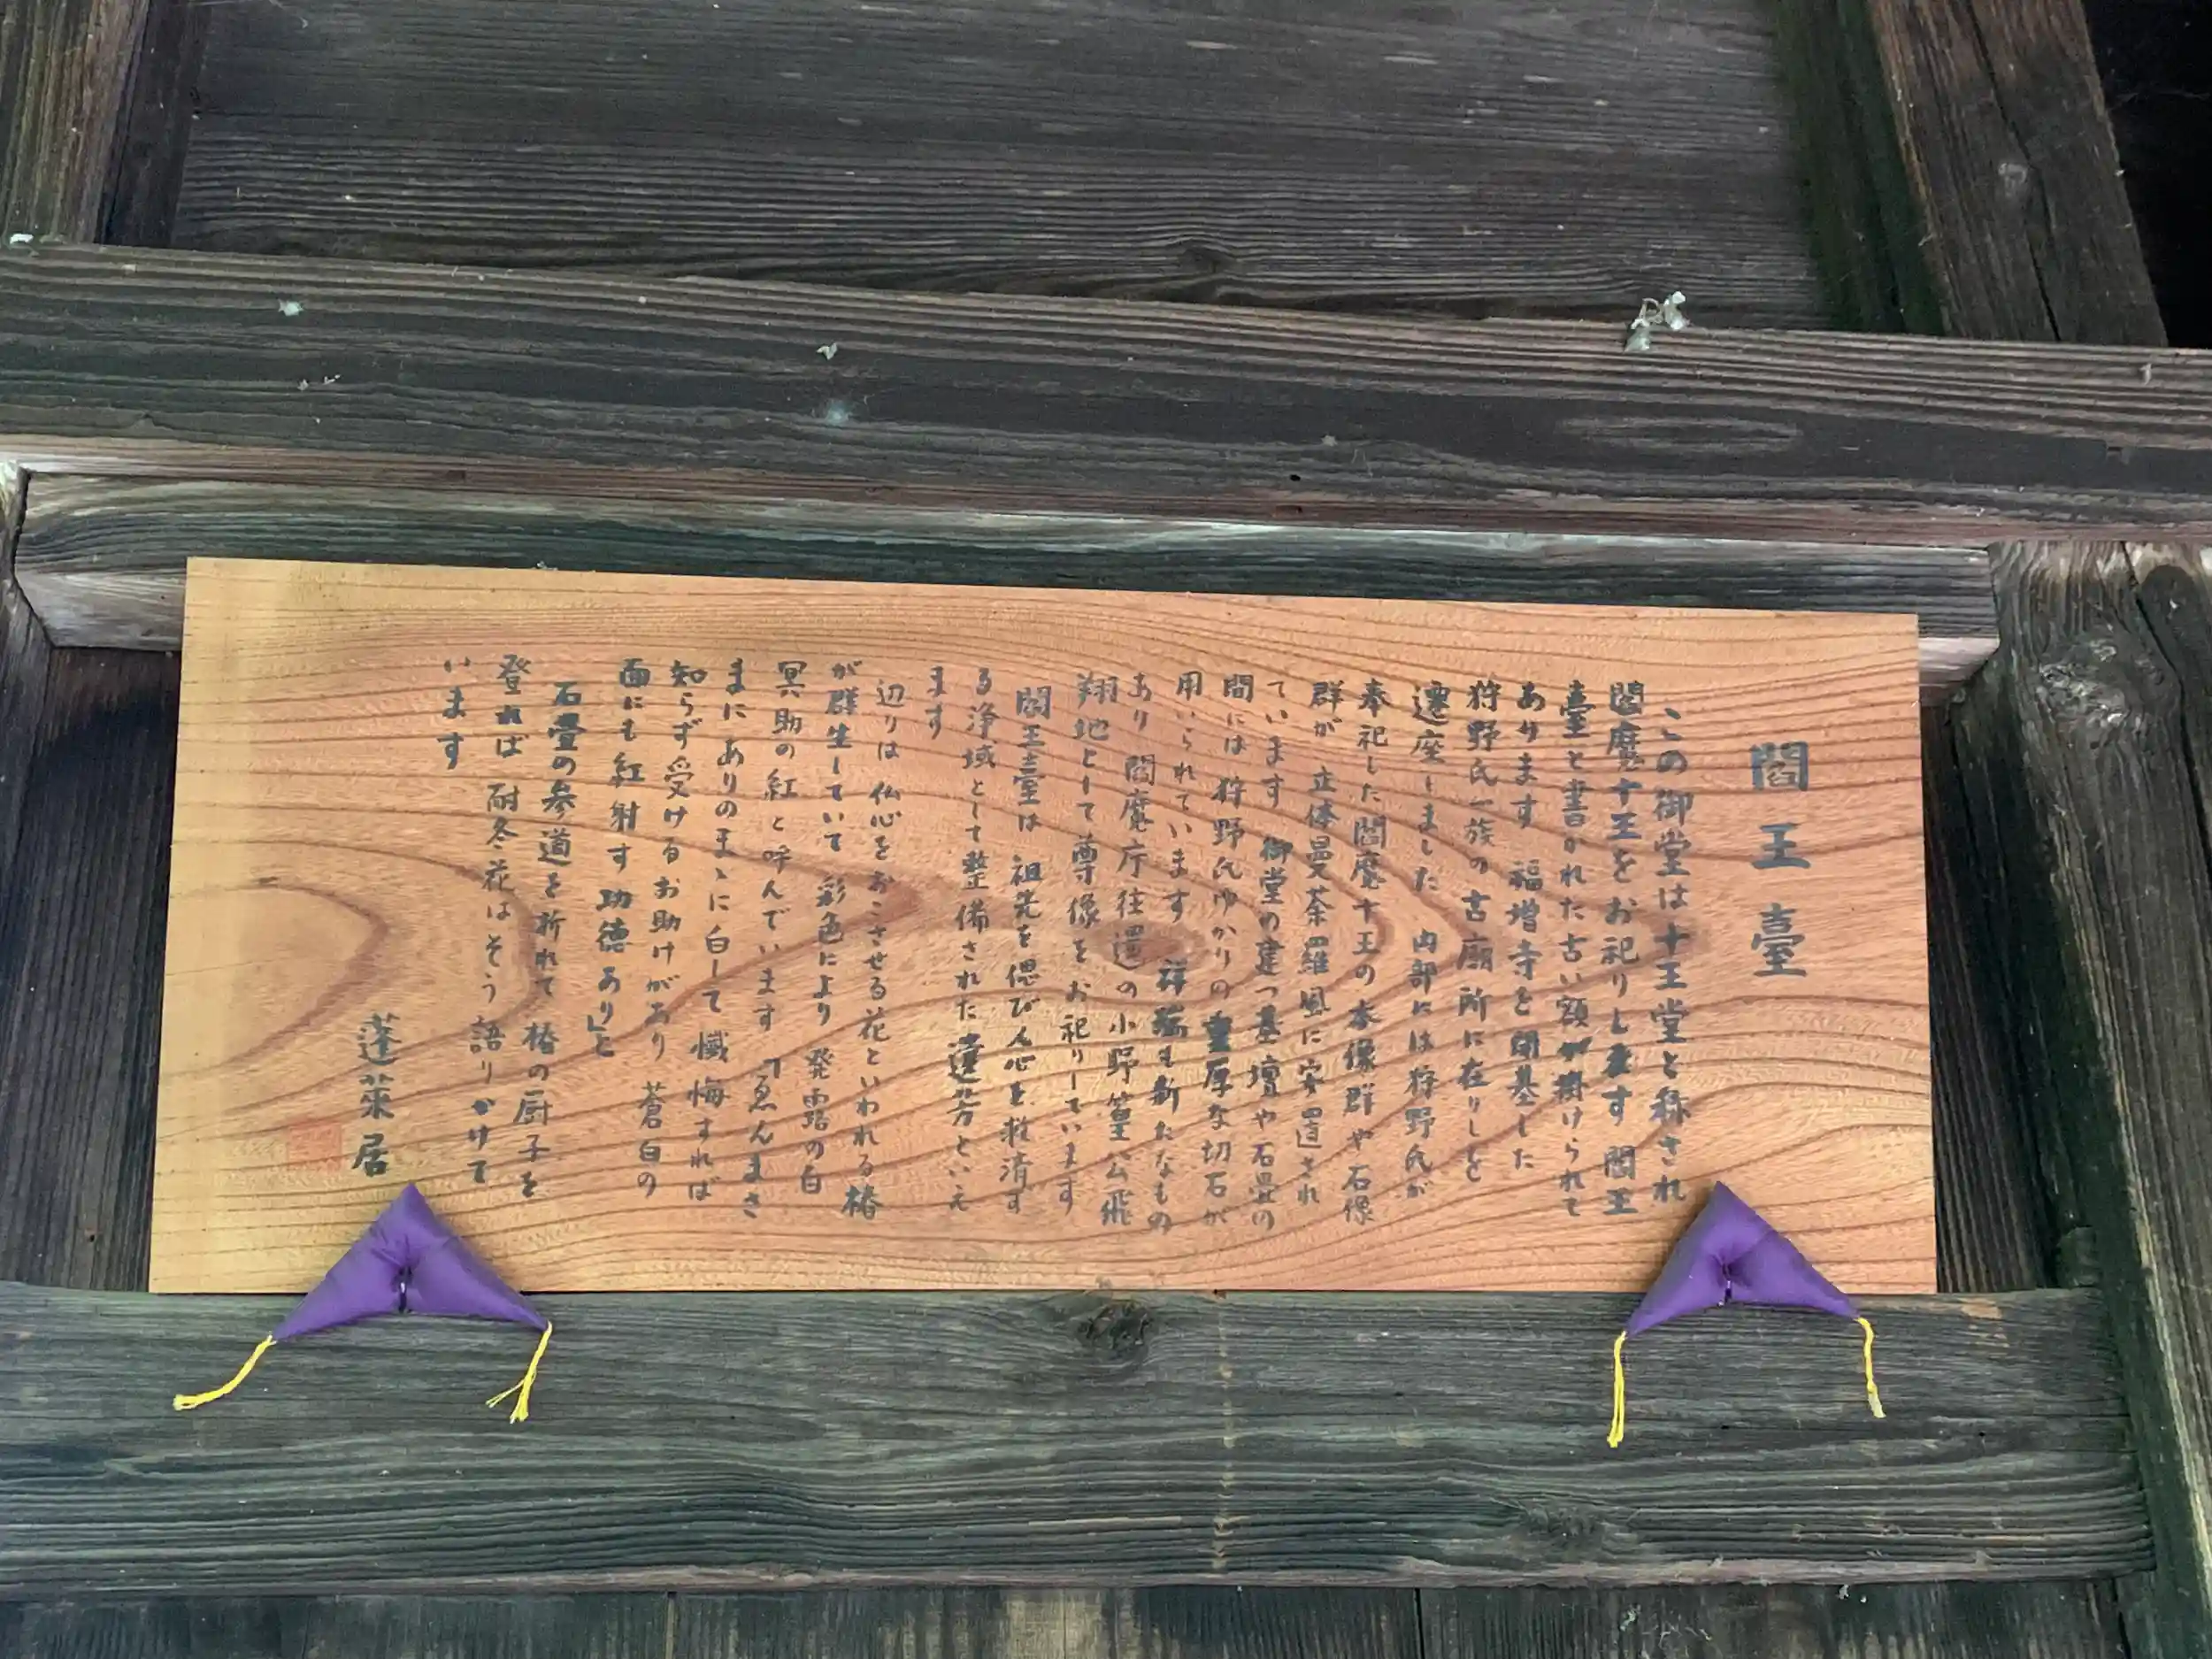 閻王臺
この御堂は十王堂と称され
閻魔十王をお祀りします 閻王
臺と書かれた古い額が掛けられて
あります 福増寺を開基した
狩野氏一族の古廟所に在りしを
遷座しました 内部には狩野氏が
奉祀した閻魔十王の本像群や石像
群が 立体曼荼羅風に安置され
ています 御堂の建つ基壇や石畳の
間には狩野氏ゆかりの重厚な切石が
用いられています 祥瑞も新たなもの
あり 閻魔庁往還の小野篁公飛
翔地として尊像をお祀りしています
閻王臺は 祖先を偲び人心を救済す
る浄域として整備された遺芳といえ
ます
辺りは仏心をおこさせる花といわれる椿
が群生していて 彩色により 発露の白
冥助の紅と呼んでいます 「ゑんまさ
まにありのまゝに白して懺悔すれば
知らず受けるお助けがあり 蒼白の
面にも紅射す功徳あり」と
石畳の参道を折れて 椿の厨子を
登れば 耐冬花はそう語りかけて
います
蓬莱居